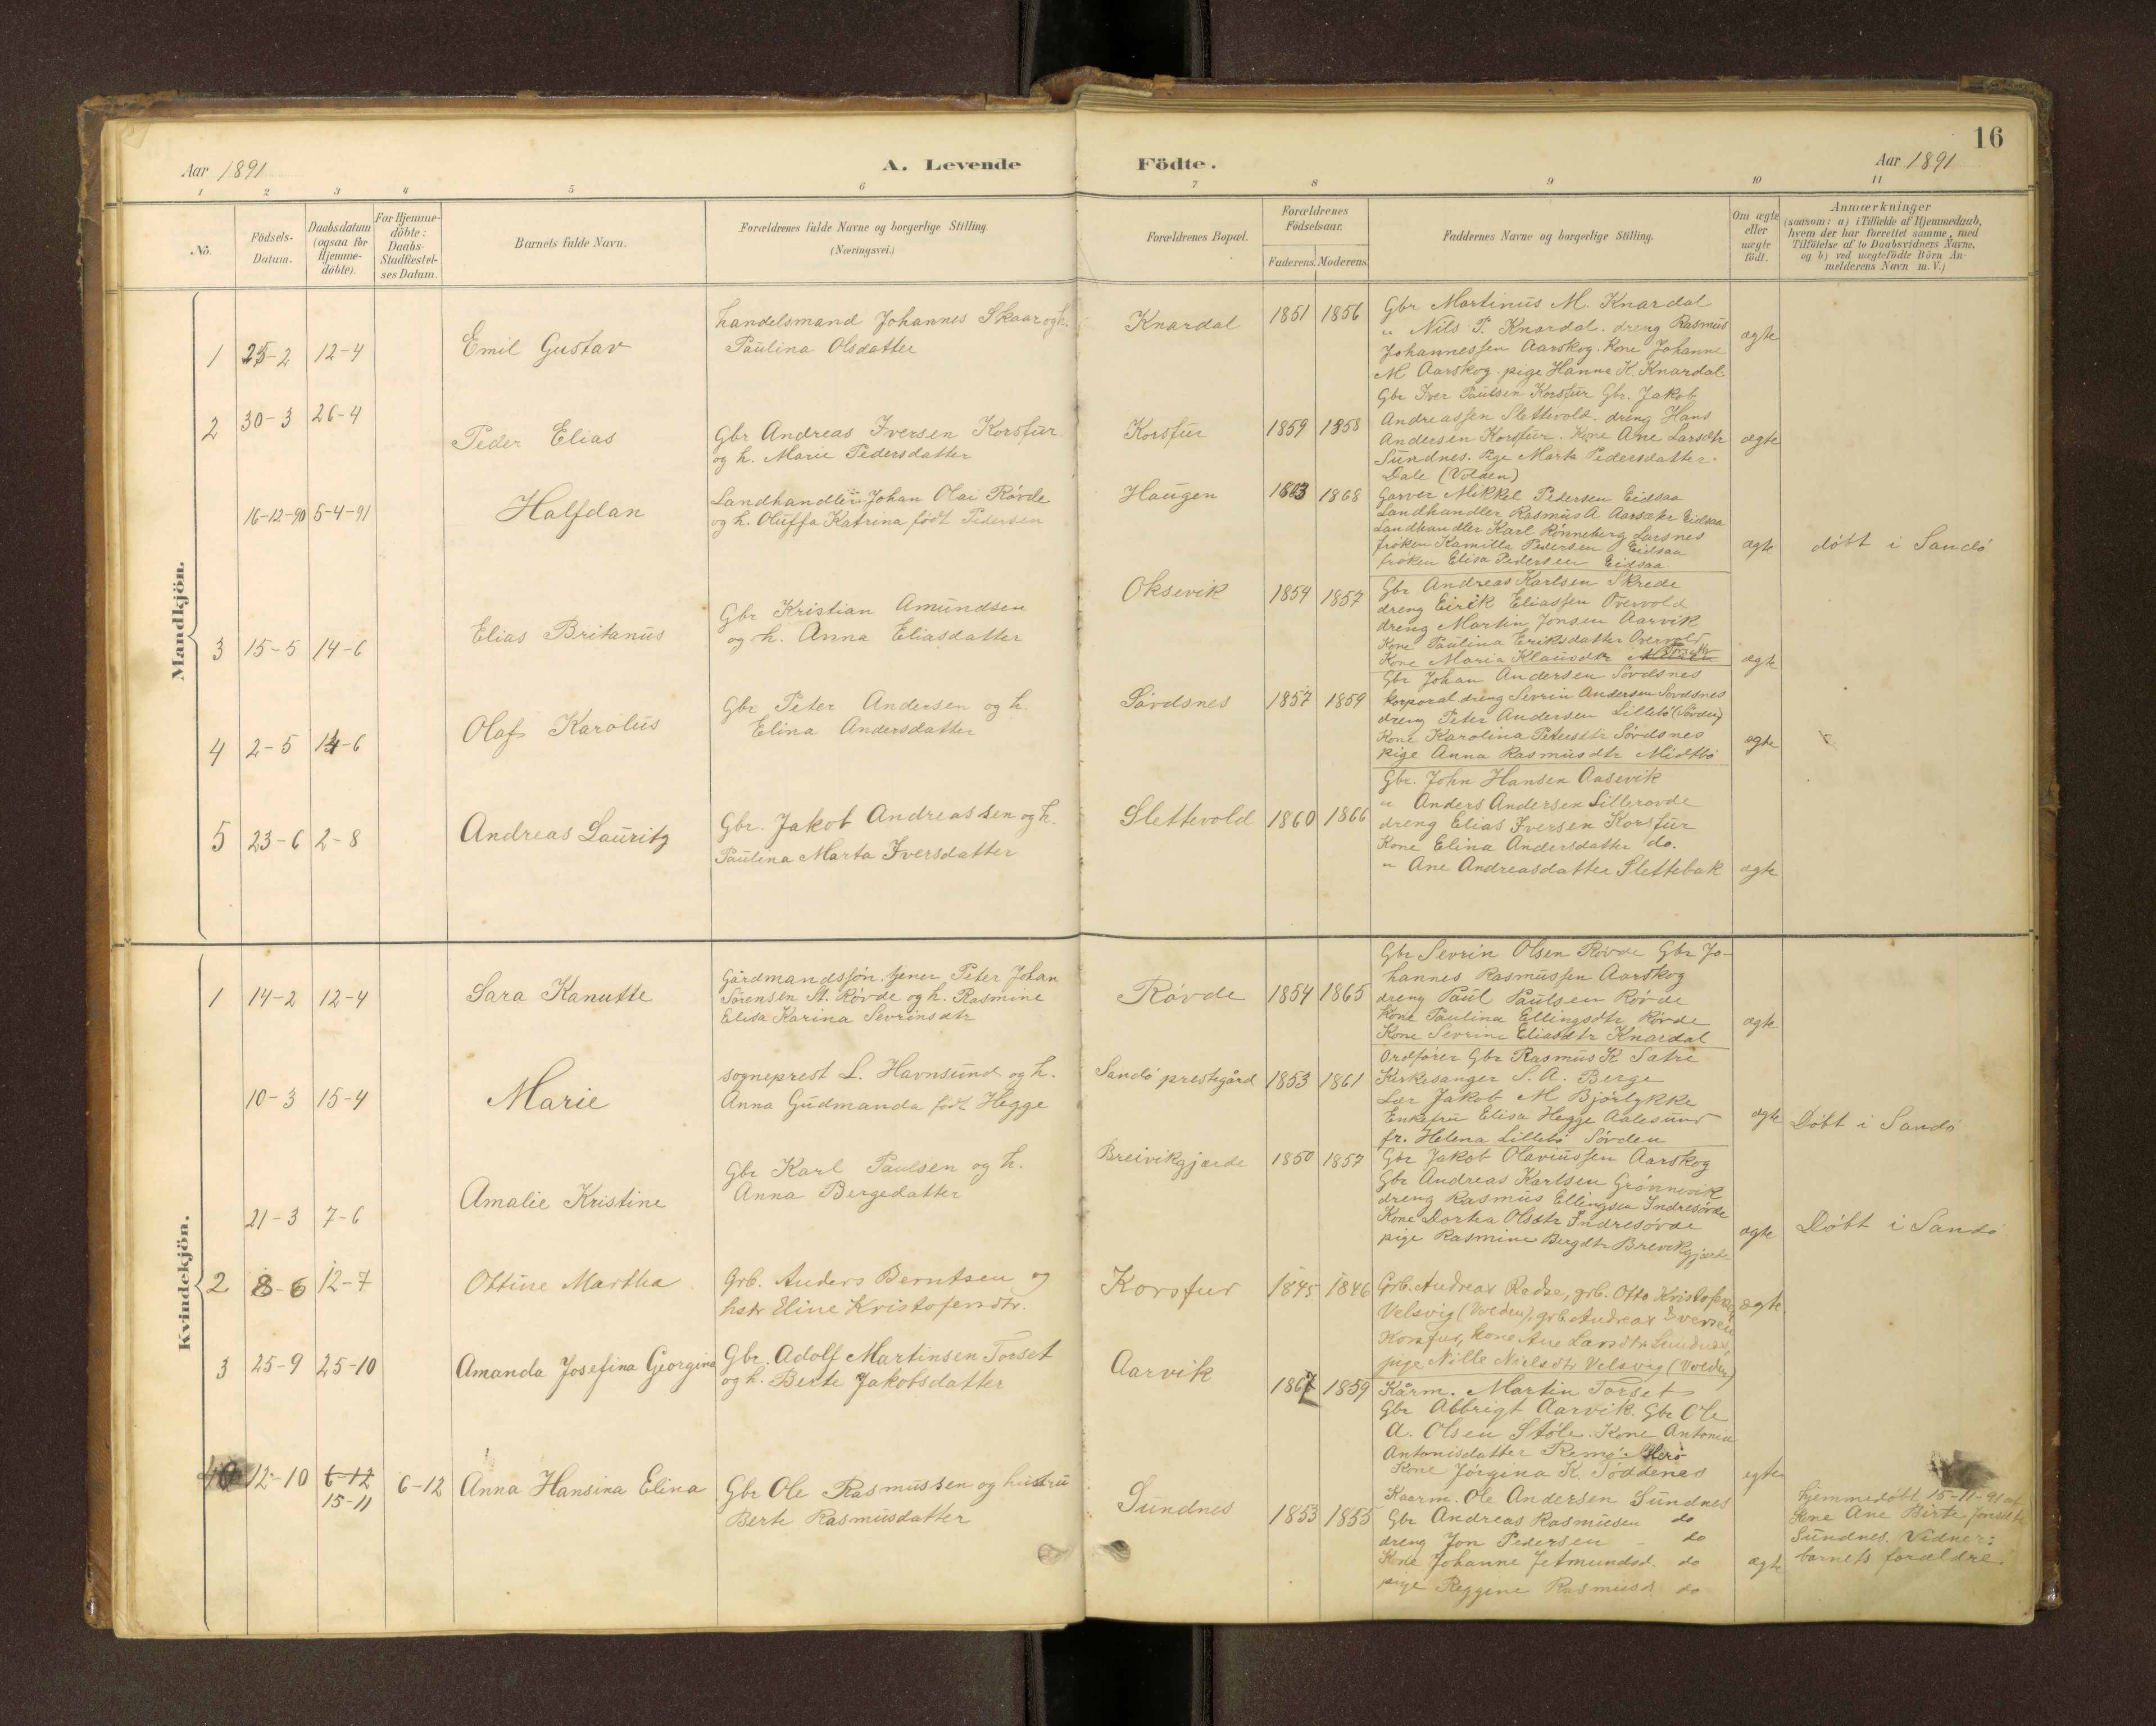 16
Aar 1891
A. Levende Födte.
Aar 1891
1 2 3 4 5 6 7 8 9 10 11
No.
Födsels-Datum.
Daabsdatum (ogsaa for Hjemme-döbte).
For Hjemme-döbte: Daabs-Stadfæstel-ses Datum.
Barnets fulde Navn.
Forældrenes fulde Navne og borgerlige Stilling.
(Næringsvei.)
Forældrenes Bopæl.
Forældrenes Födselsaar.
Faderens. Moderens.
Faddernes Navne og borgerlige Stilling.
Om ægte eller uægte födt.
Anmærkninger
(saasom: a) i Tilfælde af Hjemmedaab,
hvem der har forrettet samme, med
Tilföielse af to Daabsvidners Navne.
og b) ved uægtefödte Börn An-
melderens Navn m. V.)
Mandkjön.
1 25-2 12-4 Emil Gustav
handelsmand Johannes Skaar og h.
Paulina Olsdatter
Knardal 1851 1856
Gbr Martinus M. Knardal
" Nils P. Knardal. dreng Rasmus
Johannessen Aarskog. Kone Johanne
M Aarskog. pige Hanne K. Knardal
ægte
2 30-3 26-4 Peder Elias
Gbr Andreas Iversen Korsfur
og h. Marie Pedersdatter
Korsfur 1859 1858
Gbr Iver Paulsen Korsfur Gbr. Jakob
Andreassen Slettevold. dreng Hans
Andersen Korsfur. Kone Ane Larsdtr
Sundnes. Pige Marta Pedersdatter
Dale (Volden)
ægte
16-12-90 5-4-91 Halfdan
Landhandler Johan Olai Rövde
og h. Oluffa Katrina födt Pedersen
Haugen 1868
Garver Mikkel Pedersen Eidsaa
Landhandler Rasmus A Aarsæter Eidsaa
Landhandler Karl Rönneberg Larsnes
fröken Kamilla Pedersen Eidsaa
fröken Elisa Pedersen Eidsaa
ægte
döbt i Sandö
3 15-5 14-6 Elias Britanus
Gbr Kristian Amundsen
og h. Anna Eliasdatter
Oksevik 1854 1857
Gbr Andreas Karlsen Skrede
dreng Eirik Eliassen Overvold
dreng Martin Jonsen Aarvik
Kone Paulina Eriksdatter Overvold
Kone Maria Klausdtr
ægte
4 2-5 14-6 Olaf Karolus
Gbr Peter Andersen og h.
Elina Andersdatter
Sövdsnes 1857 1859
Gbr Johan Andersen Sövdsnes
Korporal dreng Sevrin Andersen Sovdsnes
dreng Peter Andersen Lillebö (Sövden)
Kone Karolina Petersdtr Sövdsnes
pige Anna Rasmusdtr Midtbö
ægte
5 23-6 2-8 Andreas Lauritz
Gbr. Jakob Andreassen og h.
Paulina Marta Iversdatter
Slettevold 1860 1866
Gbr. John Hansen Aasevik
" Anders Andersen Lillerovde
dreng Elias Iversen Korsfur
Kone Elina Andersdatter do.
" Ane Andreasdatter Slettebak
ægte
Kvindekjön.
1 14-2 12-4 Sara Kanutte
Gårdmandssön. tjener Peter Johan
Sörensen St. Rövde og h. Rasmine
Elisa Karina Sevrinsdtr
Rövde 1854 1865
Gbr Sevrin Olsen Rövde Gbr Jo-
hannes Rasmussen Aarskog
dreng Paul Paulsen Rövde
Kone Paulina Ellingsdtr Rövde
Kone Sevrine Eliasdtr Knardal
ægte
10-3 15-4 Marie
sogneprest L. Havnsund og h.
Anna Gudmanda födt Hegge
Sandö prestegård 1853 1861
Ordförer Gbr Rasmus K Sætre
Kirkesanger S. A. Berge
Lær Jakob M Bjorlykke
Enkefru Elisa Hegge Aalesund
fr. Helena Lillebö Sövden
ægte
Döbt i Sandö
21-3 7-6 Amalie Kristine
Gbr Karl Paulsen og h.
Anna Bergedatter
Breivikgjærde 1850 1857
Gbr Jakob Olaviussen Aarskog
Gbr Andreas Karlsen Grönnevik
dreng Rasmus Ellingsen Indresövde
Kone Dortea Olsdtr Indresövde
pige Rasmine Bergdtr Brevikgjærde
ægte
Döbt i Sandö
2 8-6 12-7 Ottine Martha
Grb. Anders Berntsen og
hstr Eline Kristofersdtr.
Korsfur 1845 1846
Grb. Andreas Radse, grb. Otto Kristofersen
Velsvig (Volden), grb. Andreas Iversen
Korsfur, kone Ane Larsdtr Sundnæs,
pige Nille Nielsdtr Velsvig (Volden)
ægte.
3 25-9 25-10 Amanda Josefina Georgina
Gbr. Adolf Martinsen Torset
og h. Berte Jakobsdatter
Aarvik 1867 1859
Kårm. Martin Torset
Gbr Albrigt Aarvik. Gbr Ole
A. Olsen Stöle. Kone Antonia
Antonisdatter Remö Herö
Kone Jörgina K. Töddenes
egte
4 12-10 6-12 6-12 Anna Hansina Elina
15-11
Gbr Ole Rasmussen og hustru
Berte Rasmusdatter
Sundnes 1853 1855
Kaarm. Ole Andersen Sundnes
Gbr Andreas Rasmusen do
dreng Jon Pedersen - do
Kone Johanne Jetmundsd. do
pige Reggine Rasmusd. do
ægte
hjemmedöbt 15-11-91 af
Kone Ane Birte Jonsdtr
Sundnes. Vidner:
barnets forældre.